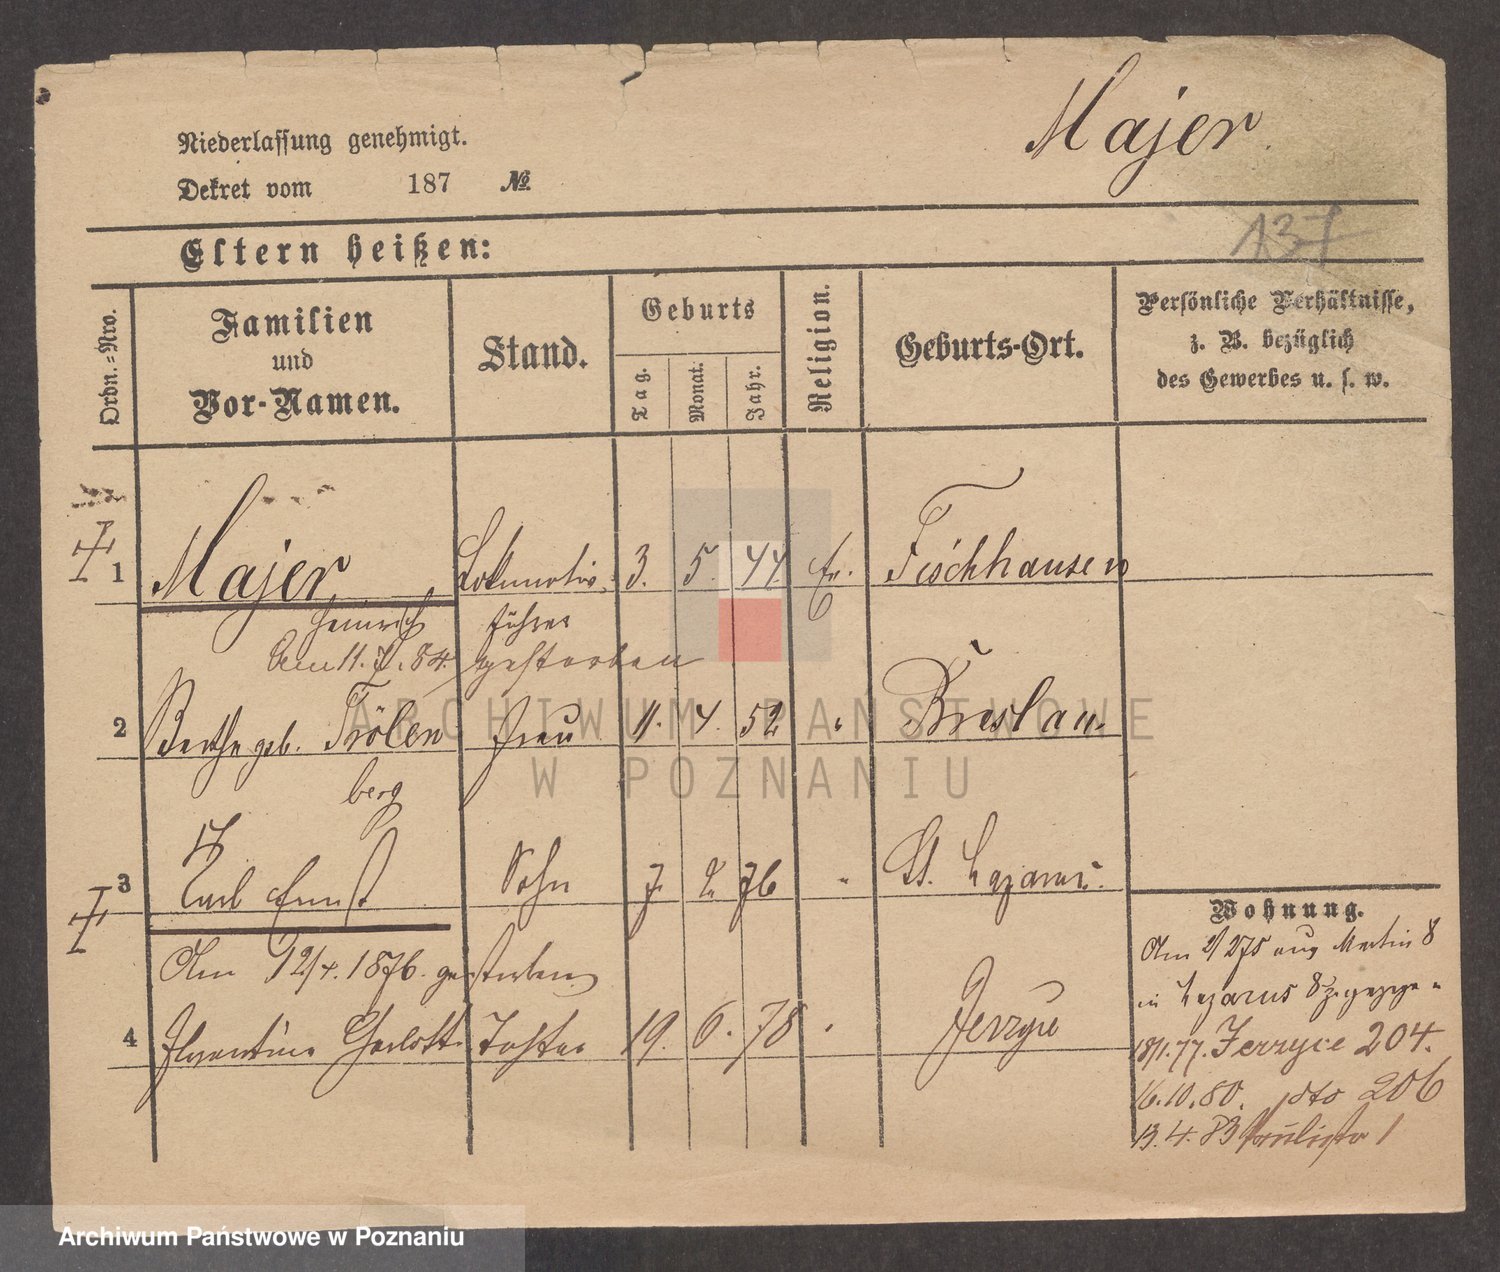 Majer.
Niederlassung genehmigt.
Dekret vom 187 №
137
Eltern heißen:
Ordn.=Nro.
Familien
und
Vor-Namen.
Stand.
Geburts
Tag.
Monat.
Jahr.
Religion.
Geburts-Ort.
Persönliche Verhältnisse,
z. B. bezüglich
des Gewerbes u. s. w.
1 Majer Lokomotiv= 3. 5. 44. Ev. Fischhausen
Heinrich führer
Am 11. 7. 84. gestorben
2 Berthe geb. Frölen Frau 11. 4. 52 " Breslau.
berg
3 Carl Ernst Sohn 7. 2. 76 " St. Lazarus.
Am 12/4. 1876. gestorben
4 Tochter 19. 6. 78 " Jerzyce
Wohnung.
Am 2/275 aus Martin 8
in Lazarus 8 gezogen
18/1.77. Jerzyce 204.
16.10.80. dto 206
13.4.83 1
ARCHIWUM PAŃSTWOWE
W POZNANIU
Archiwum Państwowe w Poznaniu